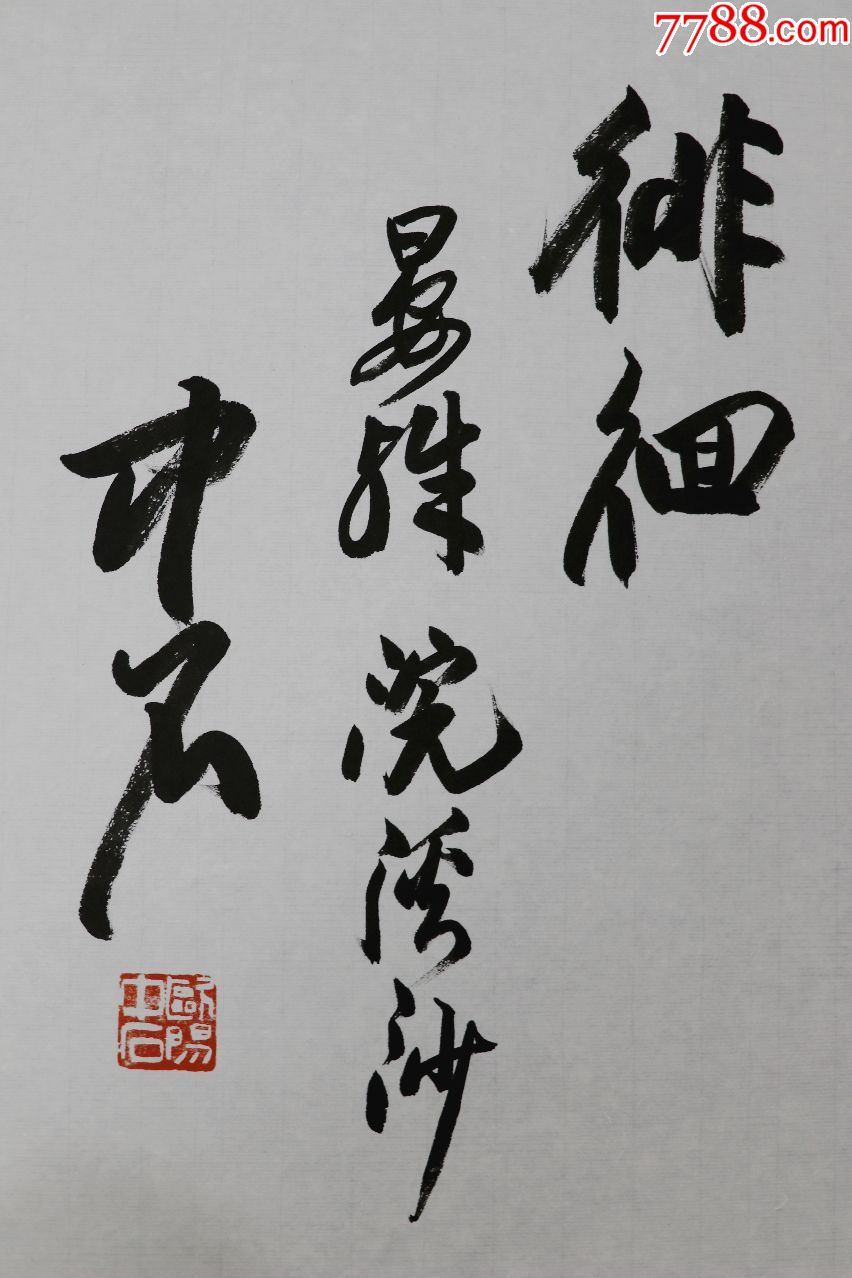 7788.com
徘徊
晏殊 浣溪沙
中石
歐陽
中石